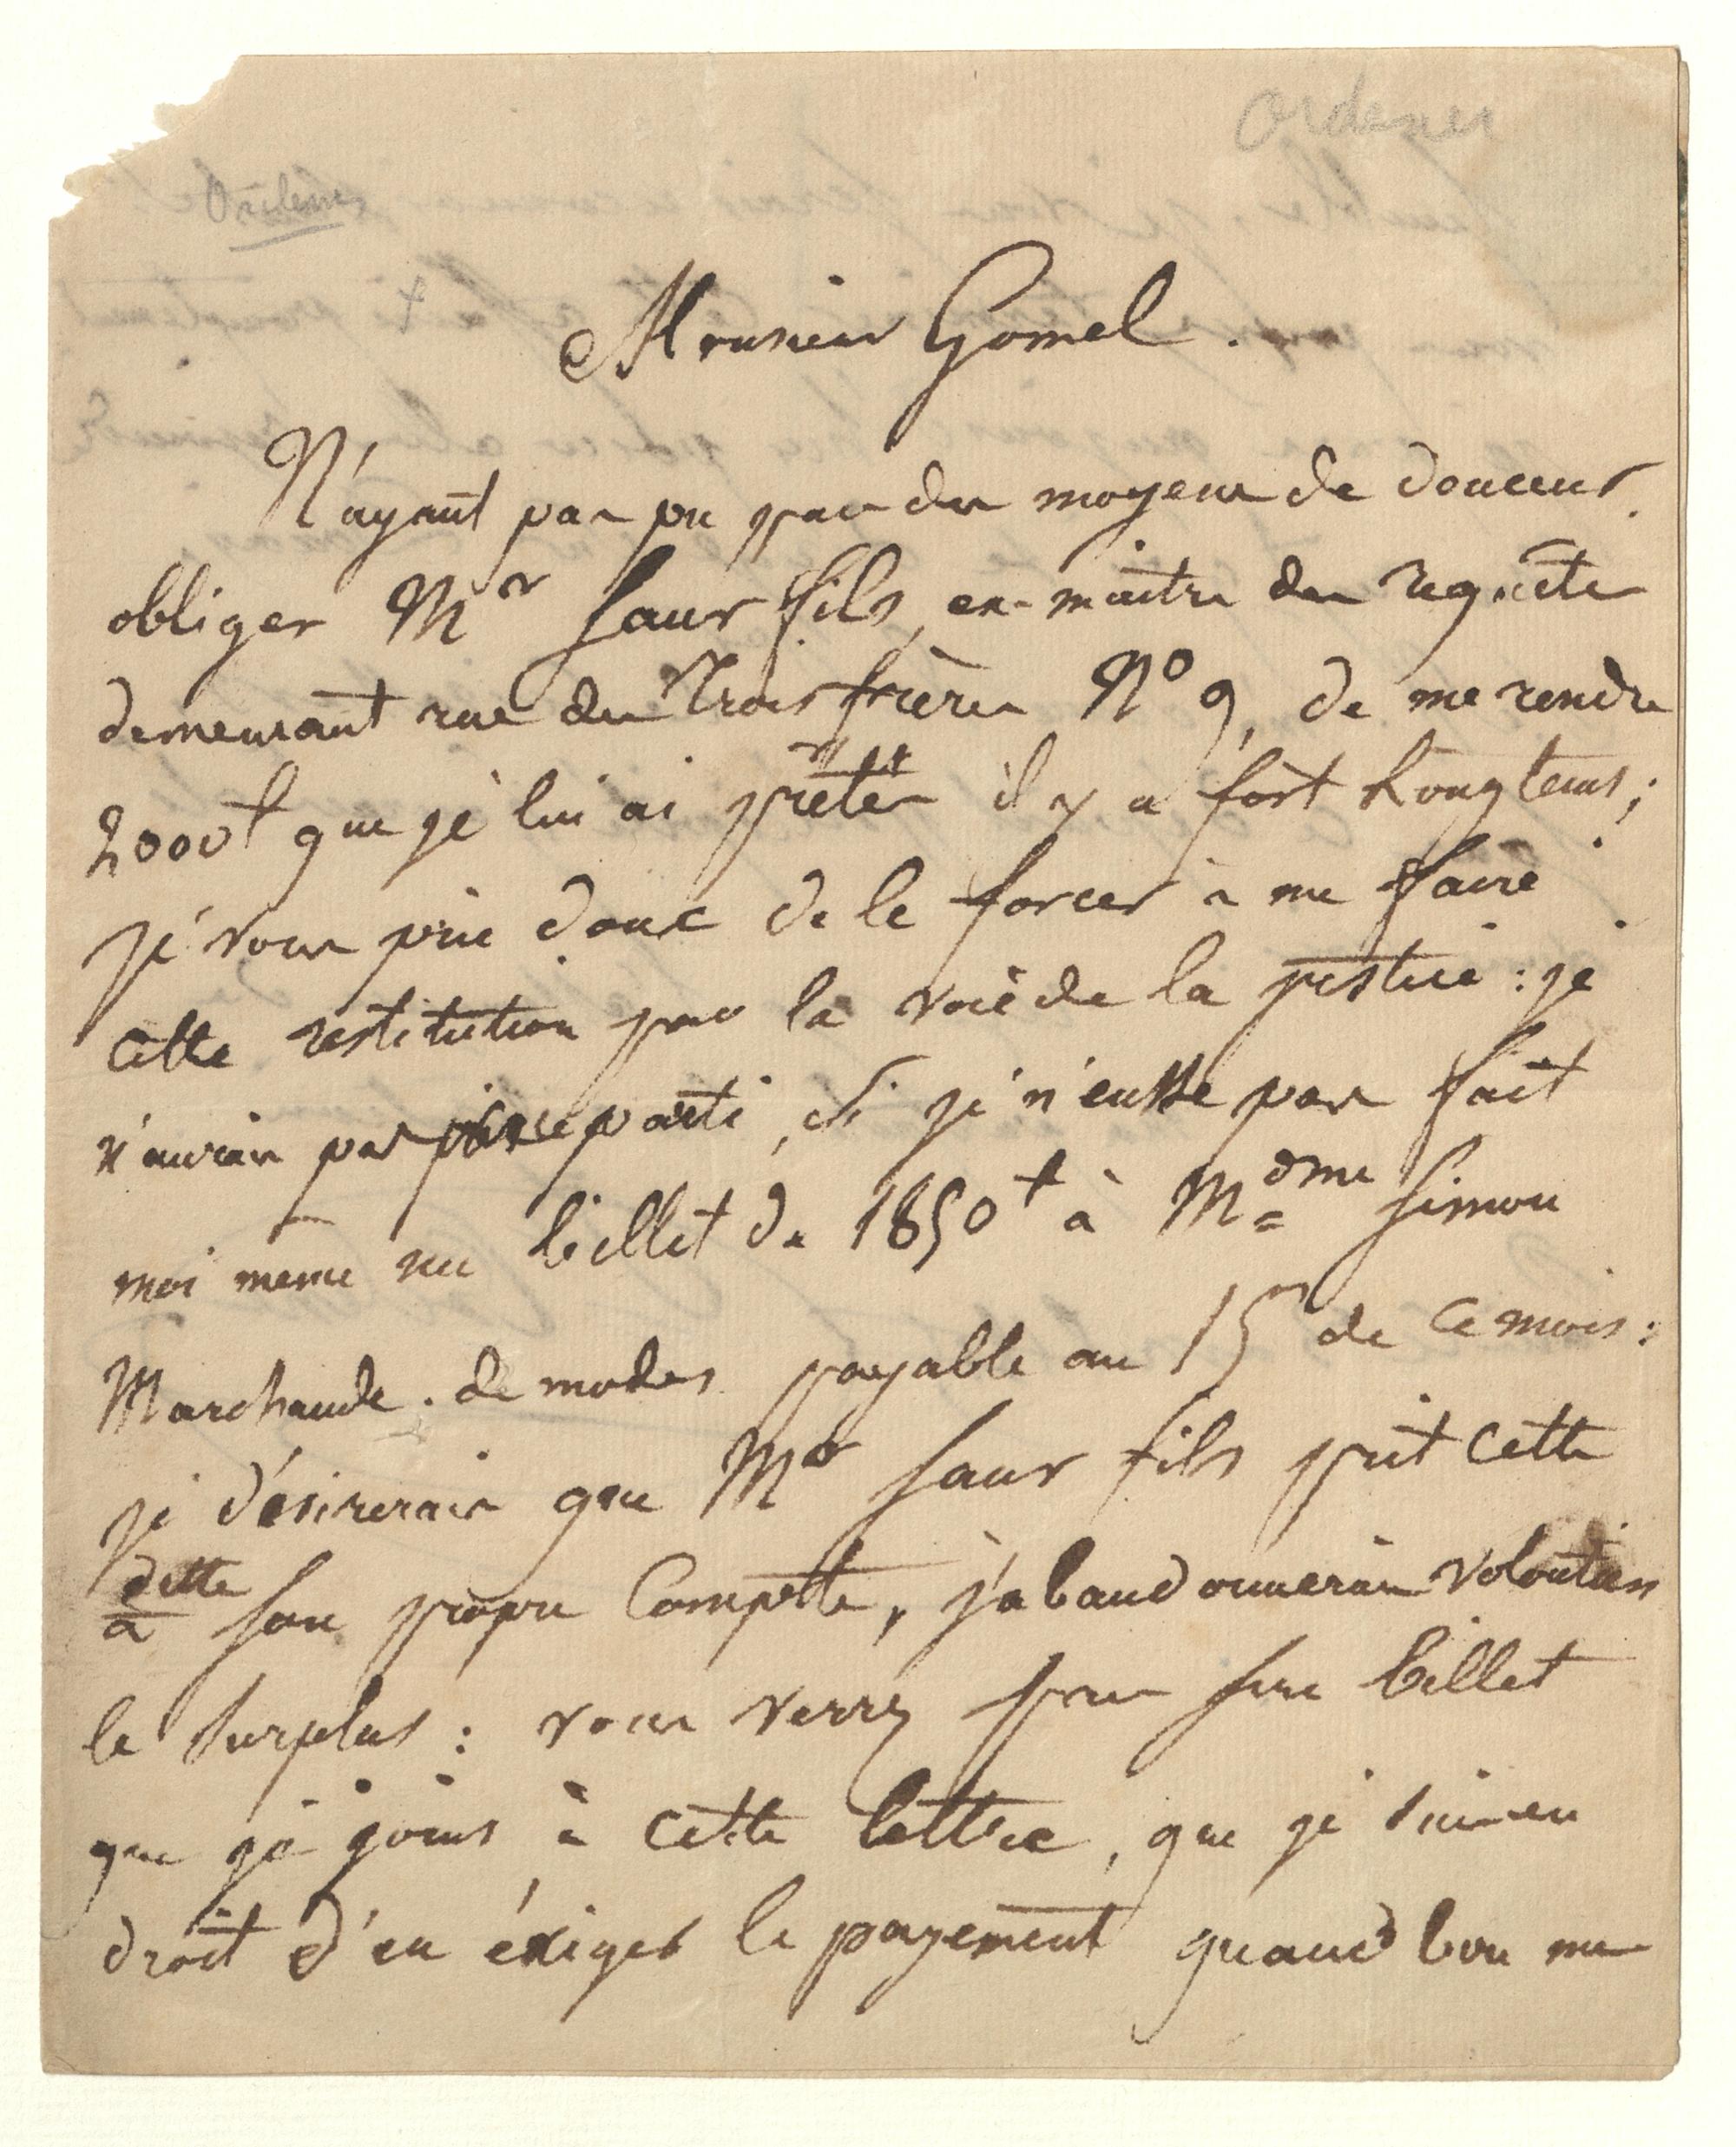 Ordener
Ordener
Monsieur Gomel.
N'ayant pas pu par des moyens de douceur
obliger Mr Saur fils, ex-maître des requête
demeurant rue des Trois frères No 9, de me rendre
2000f que je lui ai prêtés il y a fort longtems;
je vous prie donc de le forcer à me faire
cette restitution par la voie de la justice: je
n'aurais pas pris ce parti, si je n'eusse pas fait
moi meme un billet de 1850f à Mdme Simon
Marchande de modes payable au 15 de ce mois:
je désirerais que Mr Saur fils prit cette
dette
à son propre Compte, j'abandonnerais volontiers
le surplus: vous verrez par son billet
que je joins à cette lettre, que je suis en
droit d'en éxiger le payement quand bon me